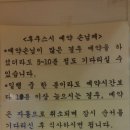 <홀우스시 예약 손님께>
*예약손님이 많은 경우 예약을 하
셨더라도 5~10분 정도 기다리실 수
있습니다.
*일행 중 한 분이라도 예약시간보
다 10분 이상 늦으시는 경우, 예약
은 자동으로 취소되며 다시 순서를
기다리신 후 식사하시면 됩니다.